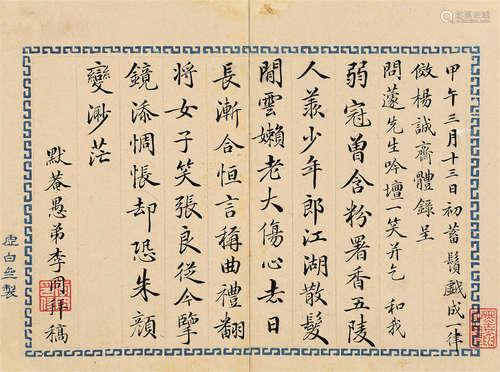 甲午三月十三日初蓄鬚戲成一律
倣楊誠齋體錄呈
問蘧先生吟壇一笑并乞 和我
弱冠曾含粉署香五陵
人羨少年郎江湖散髮
閒雲嬾老大傷心去日
長漸合恒言稱曲禮翻
將女子笑張良從今擥
鏡添惆悵却恐朱顏
變渺茫
默菴愚弟李 拜稿
虛白
製